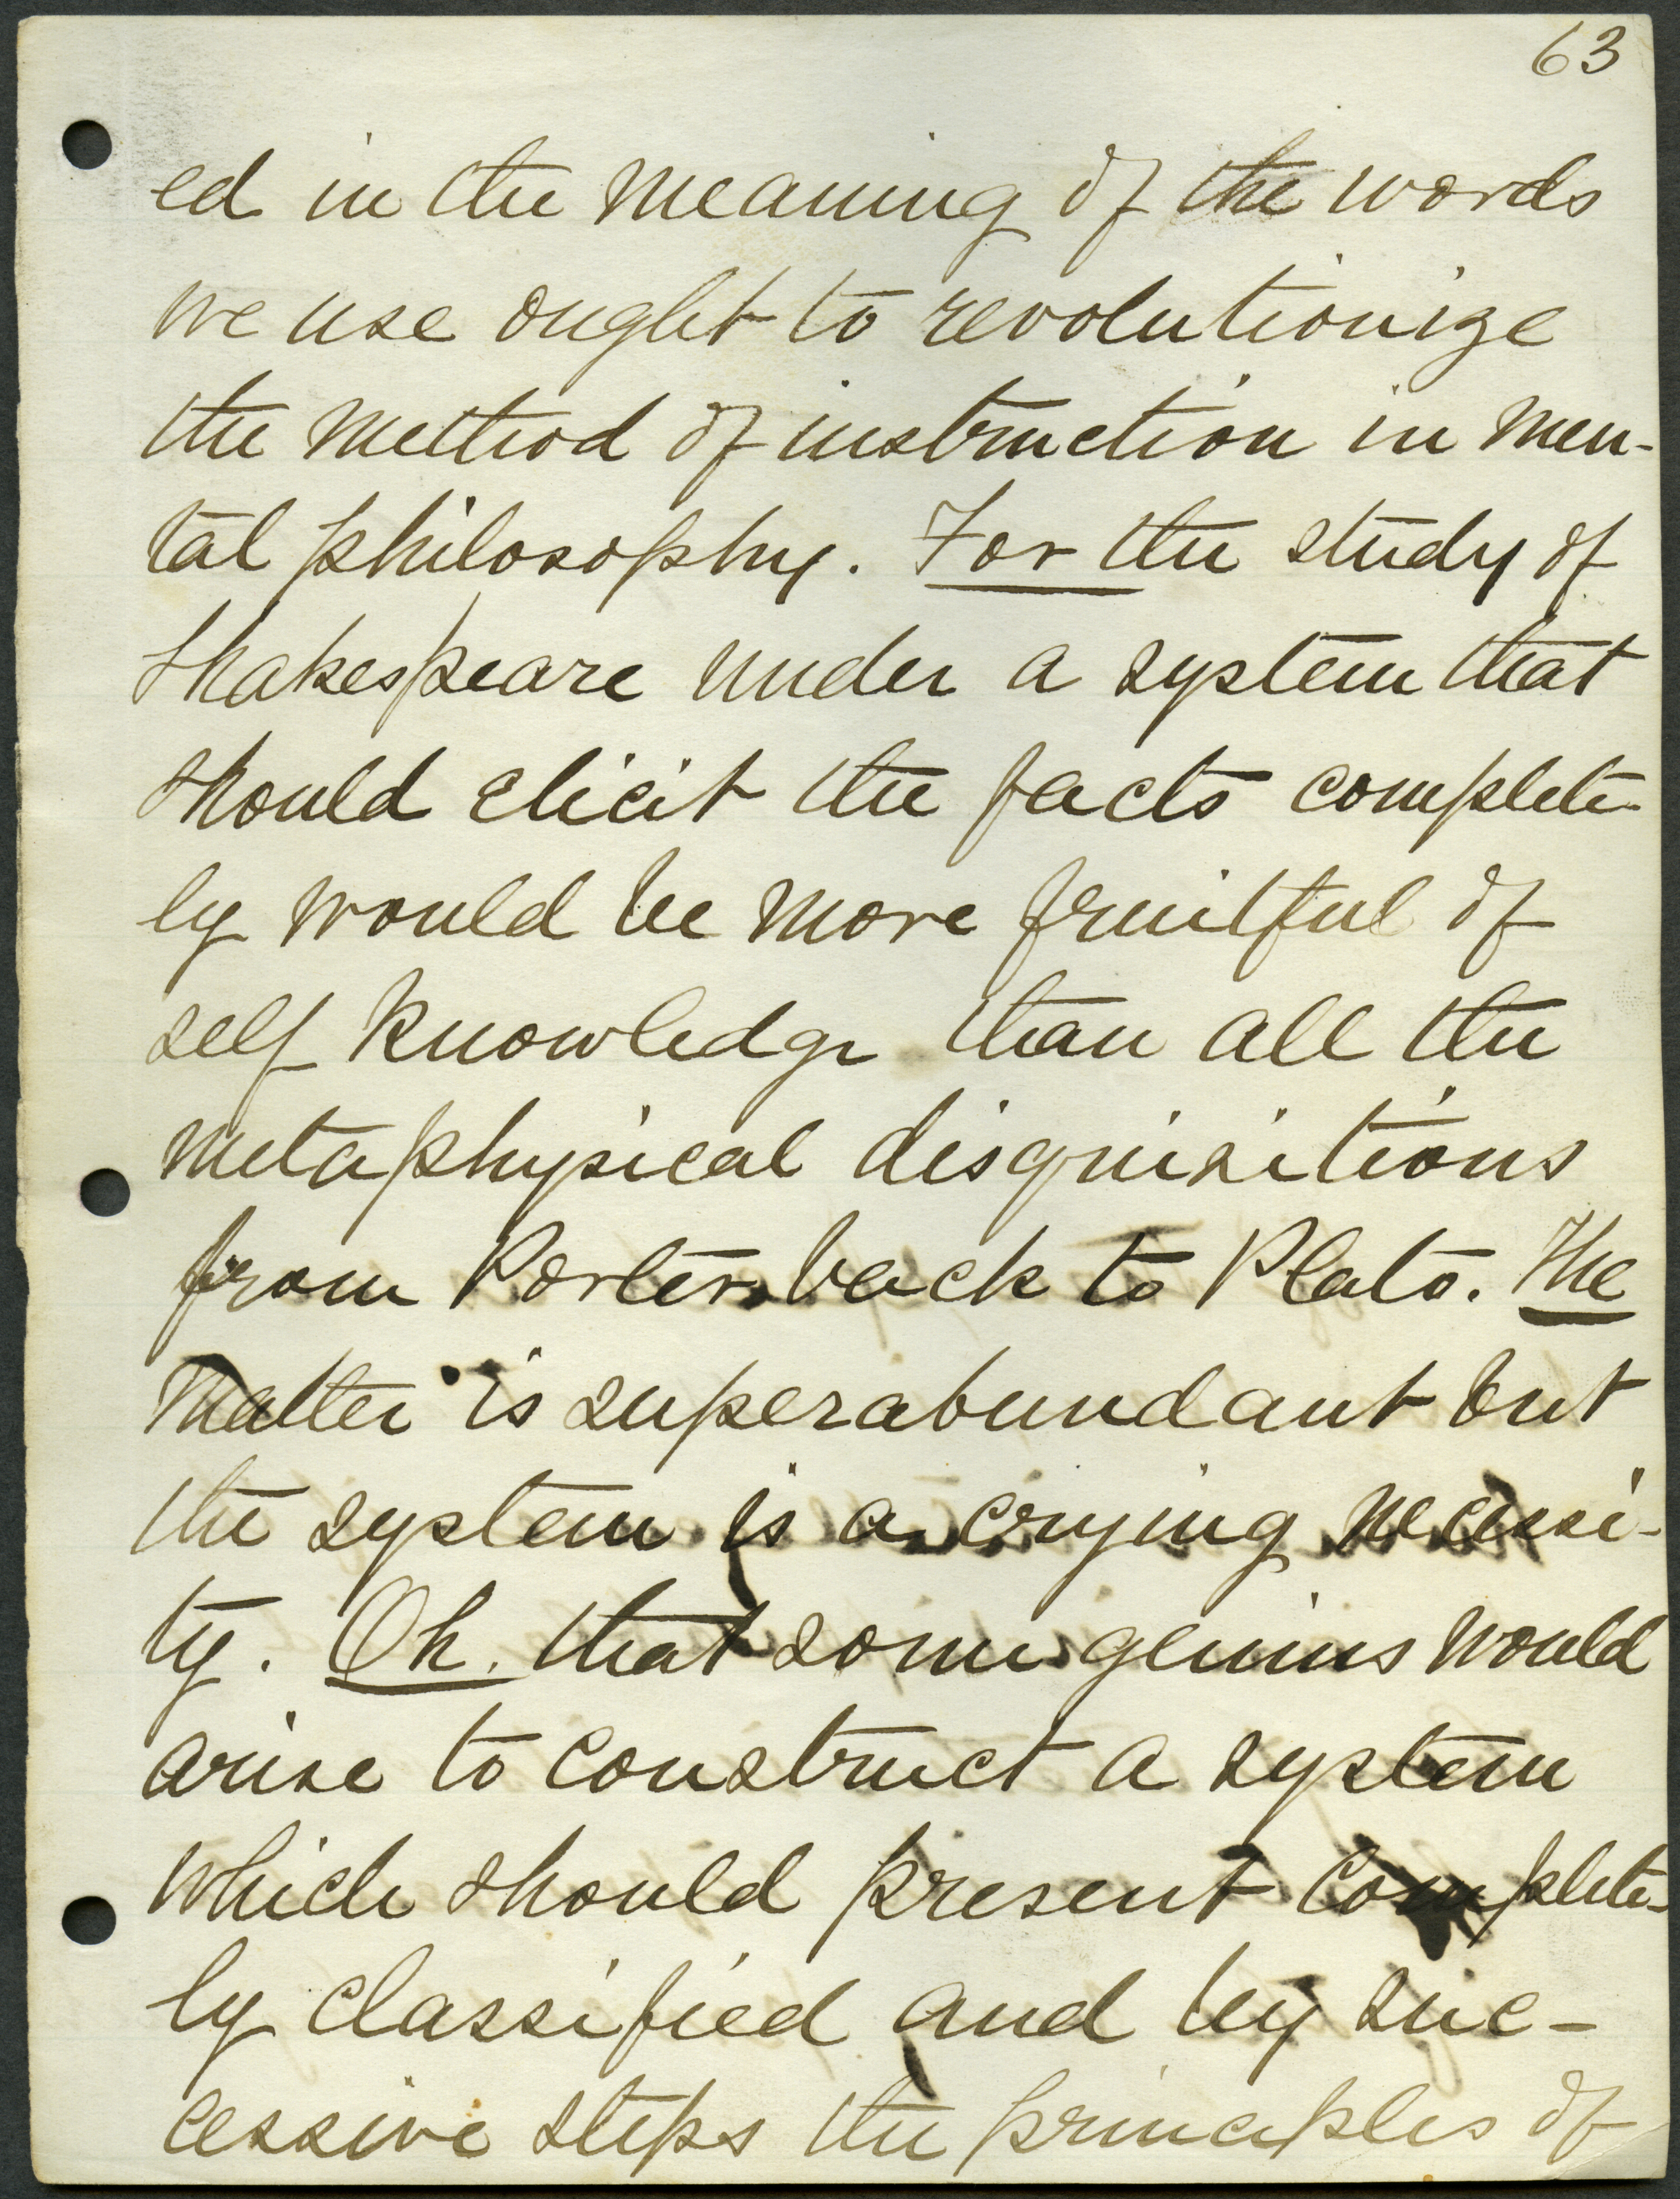 63
ed in the meaning of the words
we use ought to revolutionize
the method of instruction in men-
tal philosophy. For the study of
Shakespeare under a system that
should elicit the facts complete-
ly would be more fruitful of
self knowledge than all the
metaphysical disquisitions
from Porter back to Plato. The
matter is superabundant but
the system is a crying necessi-
ty. Oh. that some genius would
arise to construct a system
which should present complete-
ly classified and by suc-
cessive steps the principles of